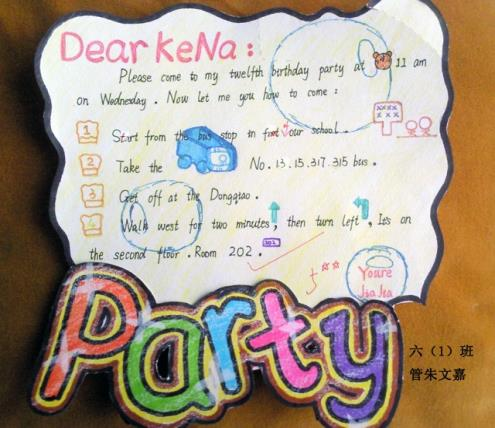 Dear KeNa:
Please come to my twelfth birthday party at 11 am
on Wednesday. Now let me you how to come:
1 Start from the bus stop in front our school.
2 Take the No.13.15.317.315 bus.
3 Get off at the Dongqiao.
4 Walk west for two minutes, then turn left, It's on
the second floor. Room 202.
202
Youre
JiaJia
Party
六（1）班
管朱文嘉